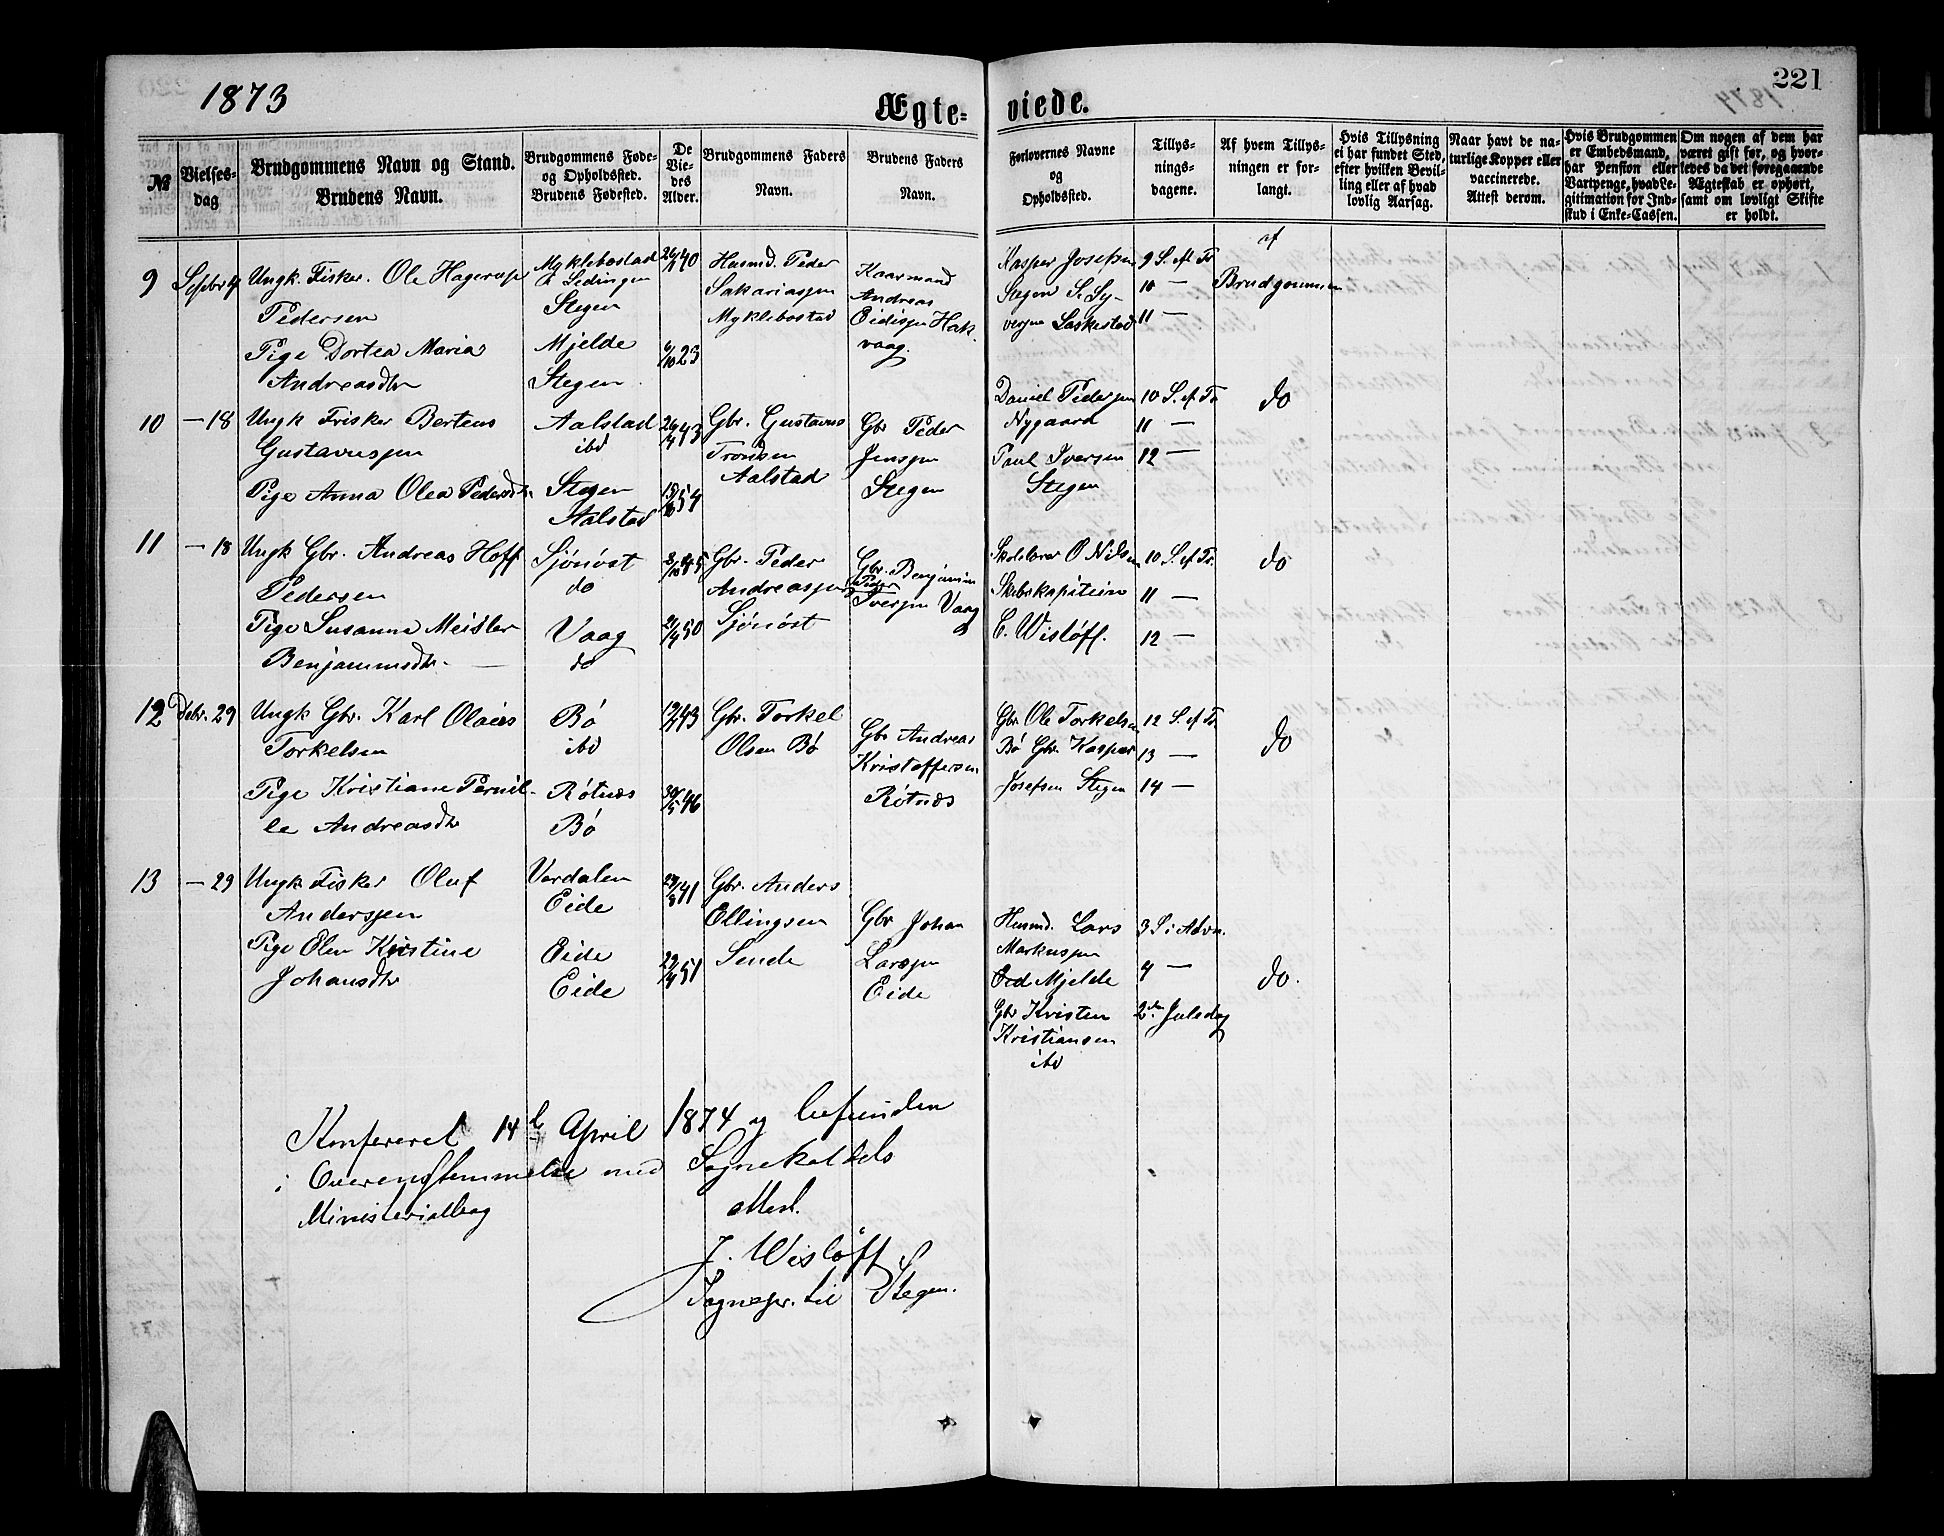 1873
Ægte-
viede.
221
1874
№
Vielses-
dag
Brudgommens Navn og Stand.
Brudens Navn.
Brudgommens Føde-
og Opholdssted.
Brudens Fødested.
De
Vie-
des
Alder.
Brudgommens Faders
Navn.
Brudens Faders
Navn.
Forlovernes Navne
og
Opholdssted.
Tillys-
nings-
dagene.
Af hvem Tillys-
ningen er for-
langt.
Hvis Tillysning
ei har fundet Sted,
efter hvilken Bevil-
ling eller af hvad
lovlig Aarsag.
Naar havt de na-
turlige Kopper eller
vaccinerede.
Attest derom.
Hvis Brudgommen
er Embedsmand,
har Pension eller
Vartpenge, hvad Le-
gitimation for Ind-
skud i Enke-Cassen.
Om nogen af dem har
været gift før, og hvor-
ledes da det foregaaende
Ægteskab er ophørt,
samt om lovligt Skifte
er holdt.
9
Ungk. Fisker. Ole Hagerup
Pedersen
Pige Dortea Maria
Andreasdtr
Myklebostad
Ledingen
Stegen
Mjelde
Stegen
40
6/10 23
Husmd. Peder
Sakariassen
Myklebostad
Kaarmand
Andreas
Eidissen Hak-
vaag.
Kasper Josefsen
Stegen S. Sy-
versen Laskestad
9 S. ef. Tr
10 —
11 —
af
Brudgommen
10 — 18
Ungk Fisker Bertens
Gustavussen
Pige Anna Olea Pedersdtr.
Aalstad
ibd
Stegen
Aalstad
43
54
Gbr. Gustavus
Tronsen
Aalstad
Gbr Peder
Jenssen
Stegen
Daniel Pedersen
Nygaard
Paul Iversen
Stegen
10 S. ef Tr
11 —
12 —
do
11 — 18
Ungk Gbr. Andreas Hoff
Pedersen
Pige Susanna Meisler
Benjaminsdtr.
Sjønøst
do
Vaag
do
45
50
Gbr. Peder
Andreassen
Sjønøst
Gbr. Benjamin
Peder
Iversen Vaag
Skolelærer O Nilsen
Skibskapitein
C. Wisløff.
10 S. ef Tr.
11 —
12 —
do
12 Debr. 29
Ungk Gbr. Karl Olaies
Torkelsen
Pige Kristiane Pernil-
le Andreasdtr
Bø
ibd
Røtnæs
Bø
43
30/5 46
Gbr. Torkel
Olsen Bø
Gbr Andreas
Kristoffersen
Røtnæs
Gbr Ole Torkelsen
Bø Gbr. Kasper
Josefsen Stegen
12 S. ef Tr.
13 —
14 —
do
13 — 29
Ungk Fisker Oluf
Anderssen
Pige Elen Kristine
Johansdtr
Værdalen
Eide
Eide
Eide
41
51
Gbr. Anders
Ellingsen
Sende
Gbr Johan
Larssen
Eide
Husmd. Lars
Markussen
Mjelde
Gbr Kristen
Kristiansen
ibd
3 S. i Advn.
4 —
2den Juledag
do.
Konfereret 14de April 1874 og befunden
i Overensstemmelse med Sognekaldets
Ministerialbog
Attest.
J. Wisløff
Sognepr. til Stegen.